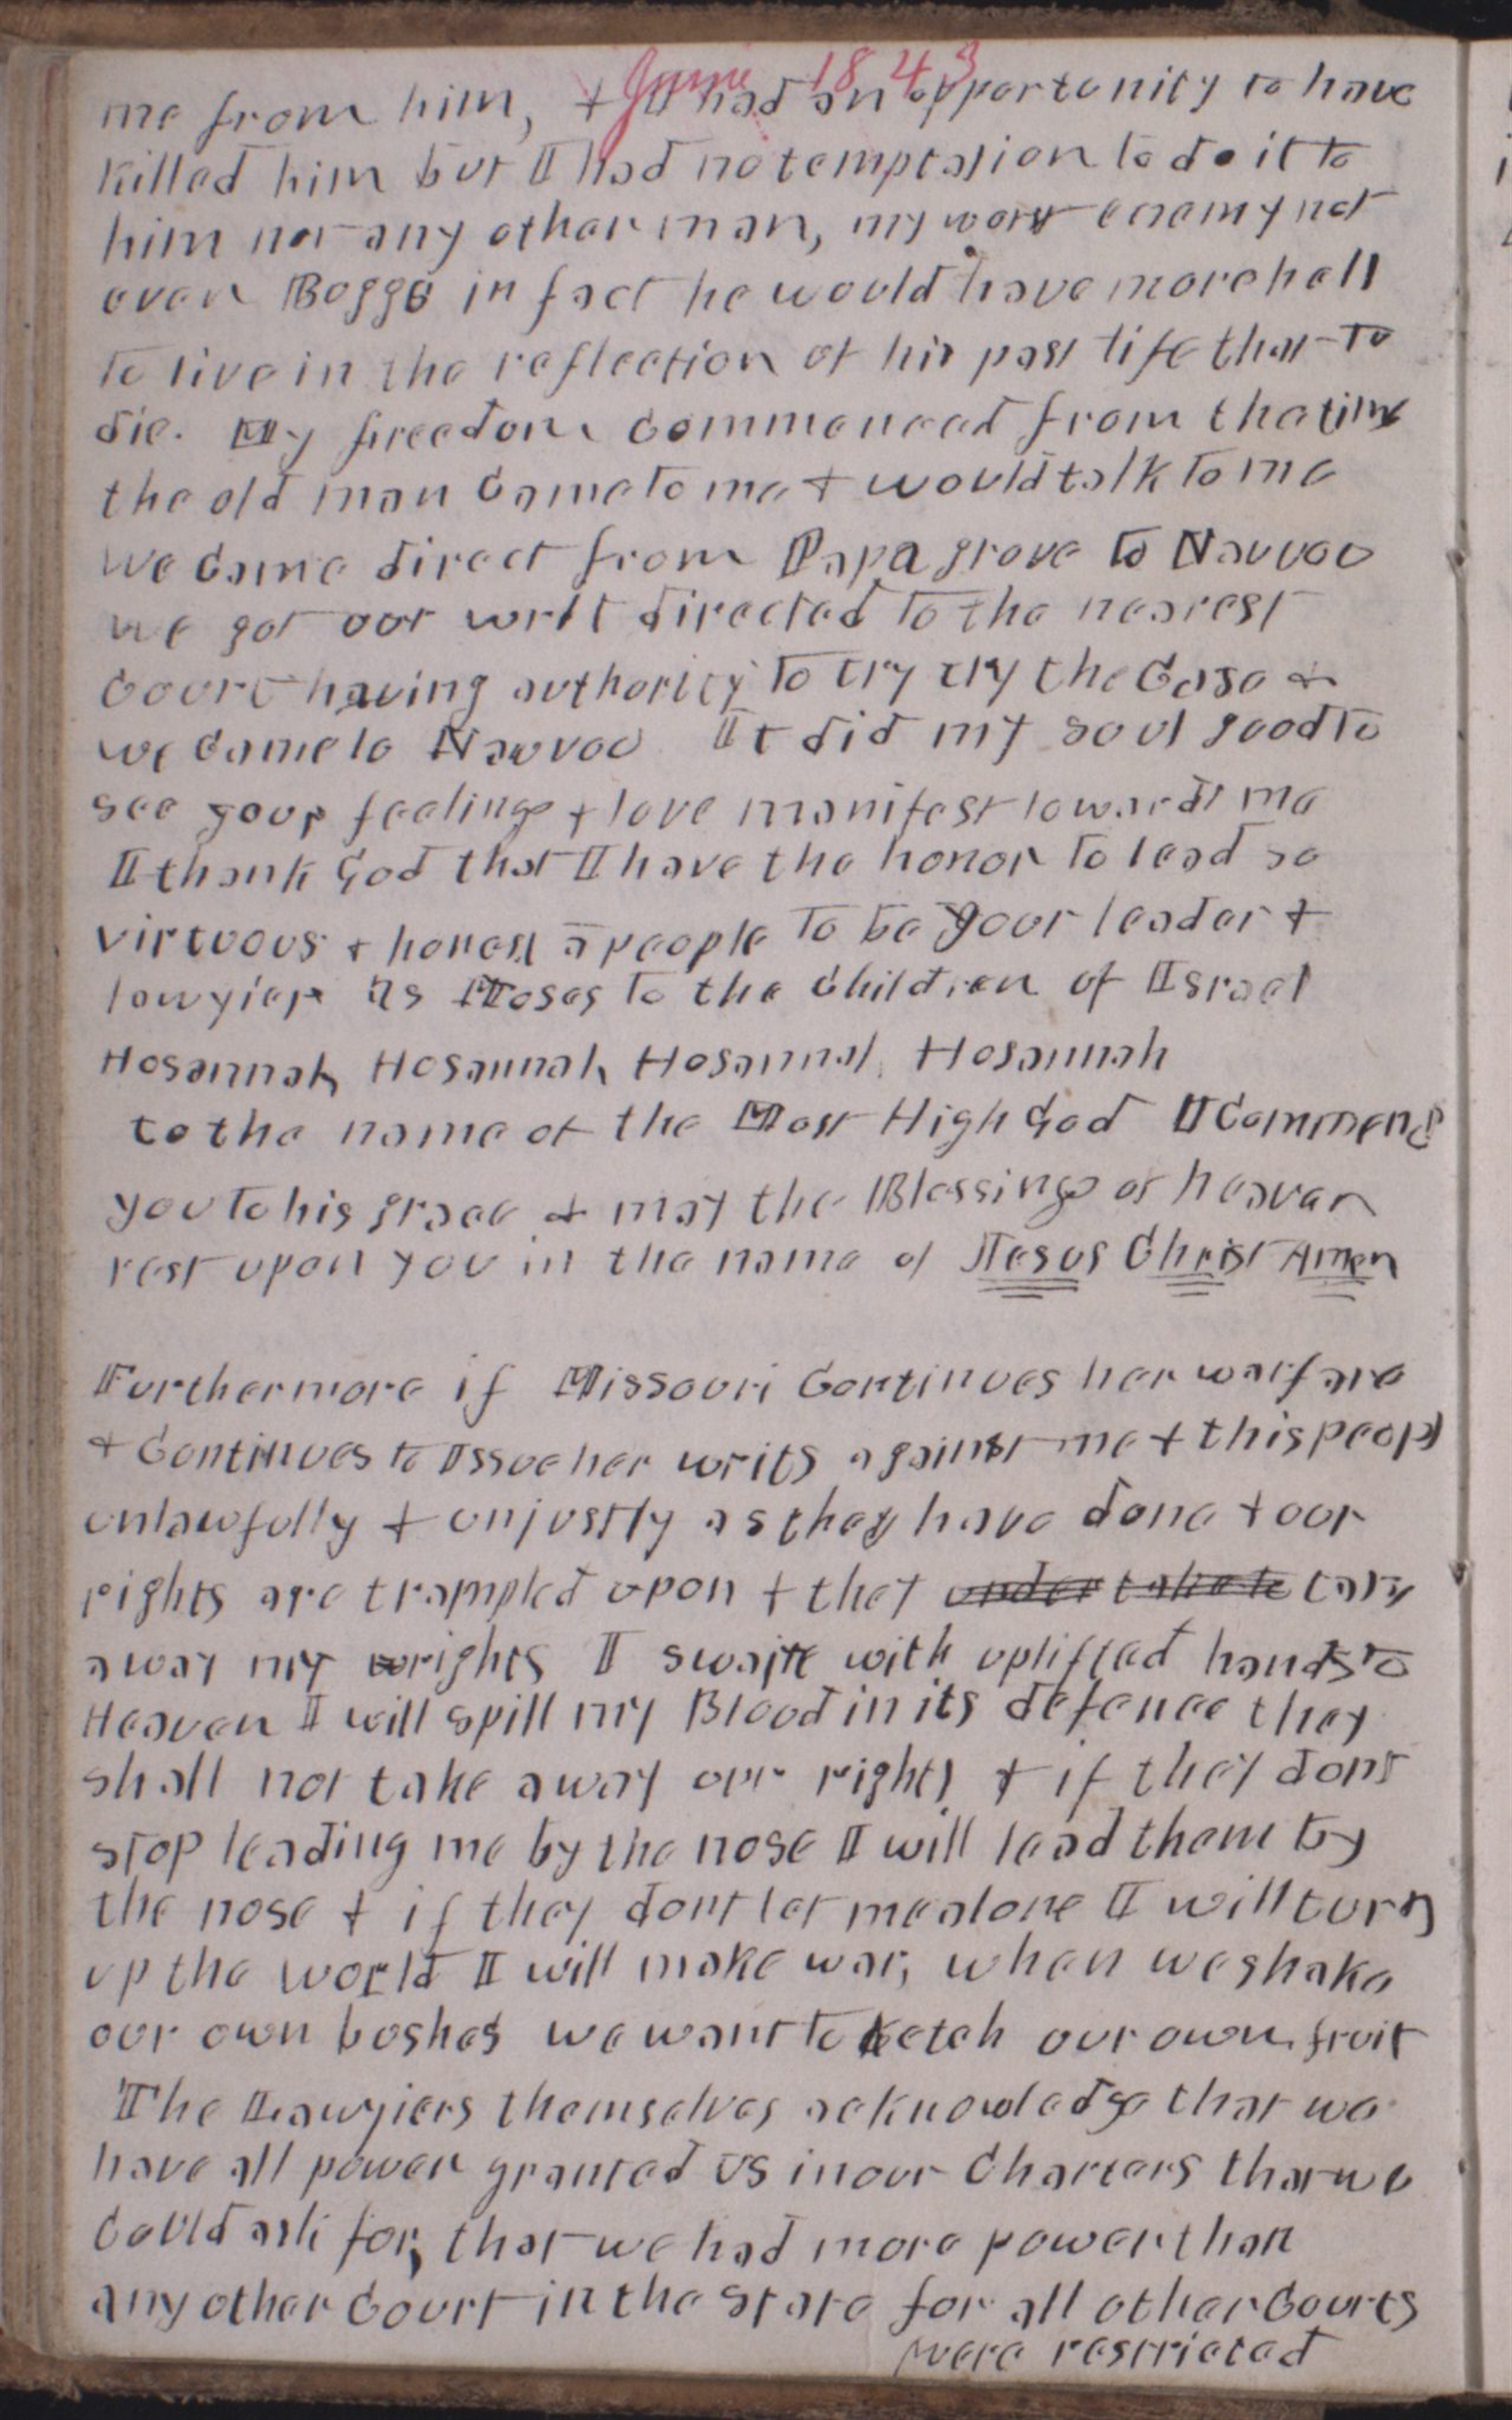 June 1843
me from him, + I had an opportunity to have
killed him but I had no temptation to do it to
him nor any other man, my worst enemy not
even Boggs in fact he would have more hell
to live in the reflection of his past life than to
die. My freedom commenced from the time
the old man came to me + would talk to me
we came direct from Papa grove to Nauvoo
we got our writ directed to the nearest
court having authority to try try the case +
we came to Nauvoo It did my soul good to
see your feelings + love manifest towards me
I thank God that I have the honor to lead so
virtuous + honest a people to be your leader +
lawyier as Moses to the children of Israel
Hosannah Hosannah Hosannah Hosannah
to the name of the Most High God I commend
you to his grace + may the Blessings of heaven
rest upon you in the name of Jesus Christ Amen
Furthermore if Missouri continues her warfare
+ continues to Issue her writs against me + this peopl
unlawfully + unjustly as they have done + our
rights are trampled upon + they undertake to take
away my wrights I swair with uplifted hands to
Heaven I will spill my Blood in its defence they
shall not take away our rights + if they dont
stop leading me by the nose I will lead them by
the nose + if they dont let me alone I will turn
up the world I will make war, when we shake
our own bushes we want to ketch our own fruit
The Lawyiers themselves acknowledge that we
have all power granted us in our charters that we
could ask for, that we had more power than
any other court in the state for all other courts
were restricted